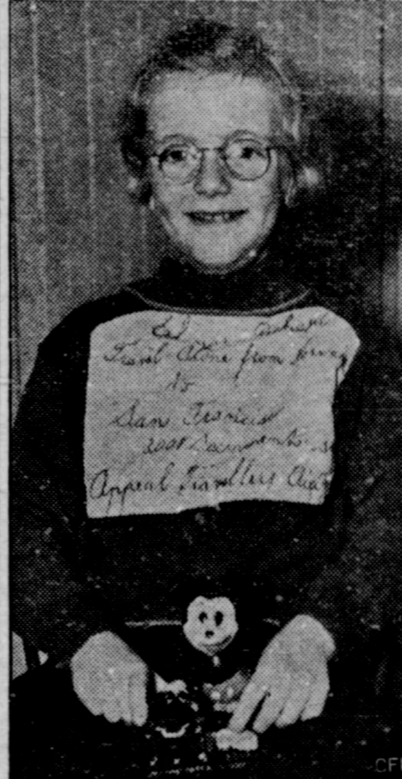 Travel Alone from
to
San Francisco
2001 Sacramento St
Appeal Travellers Aid
CFI